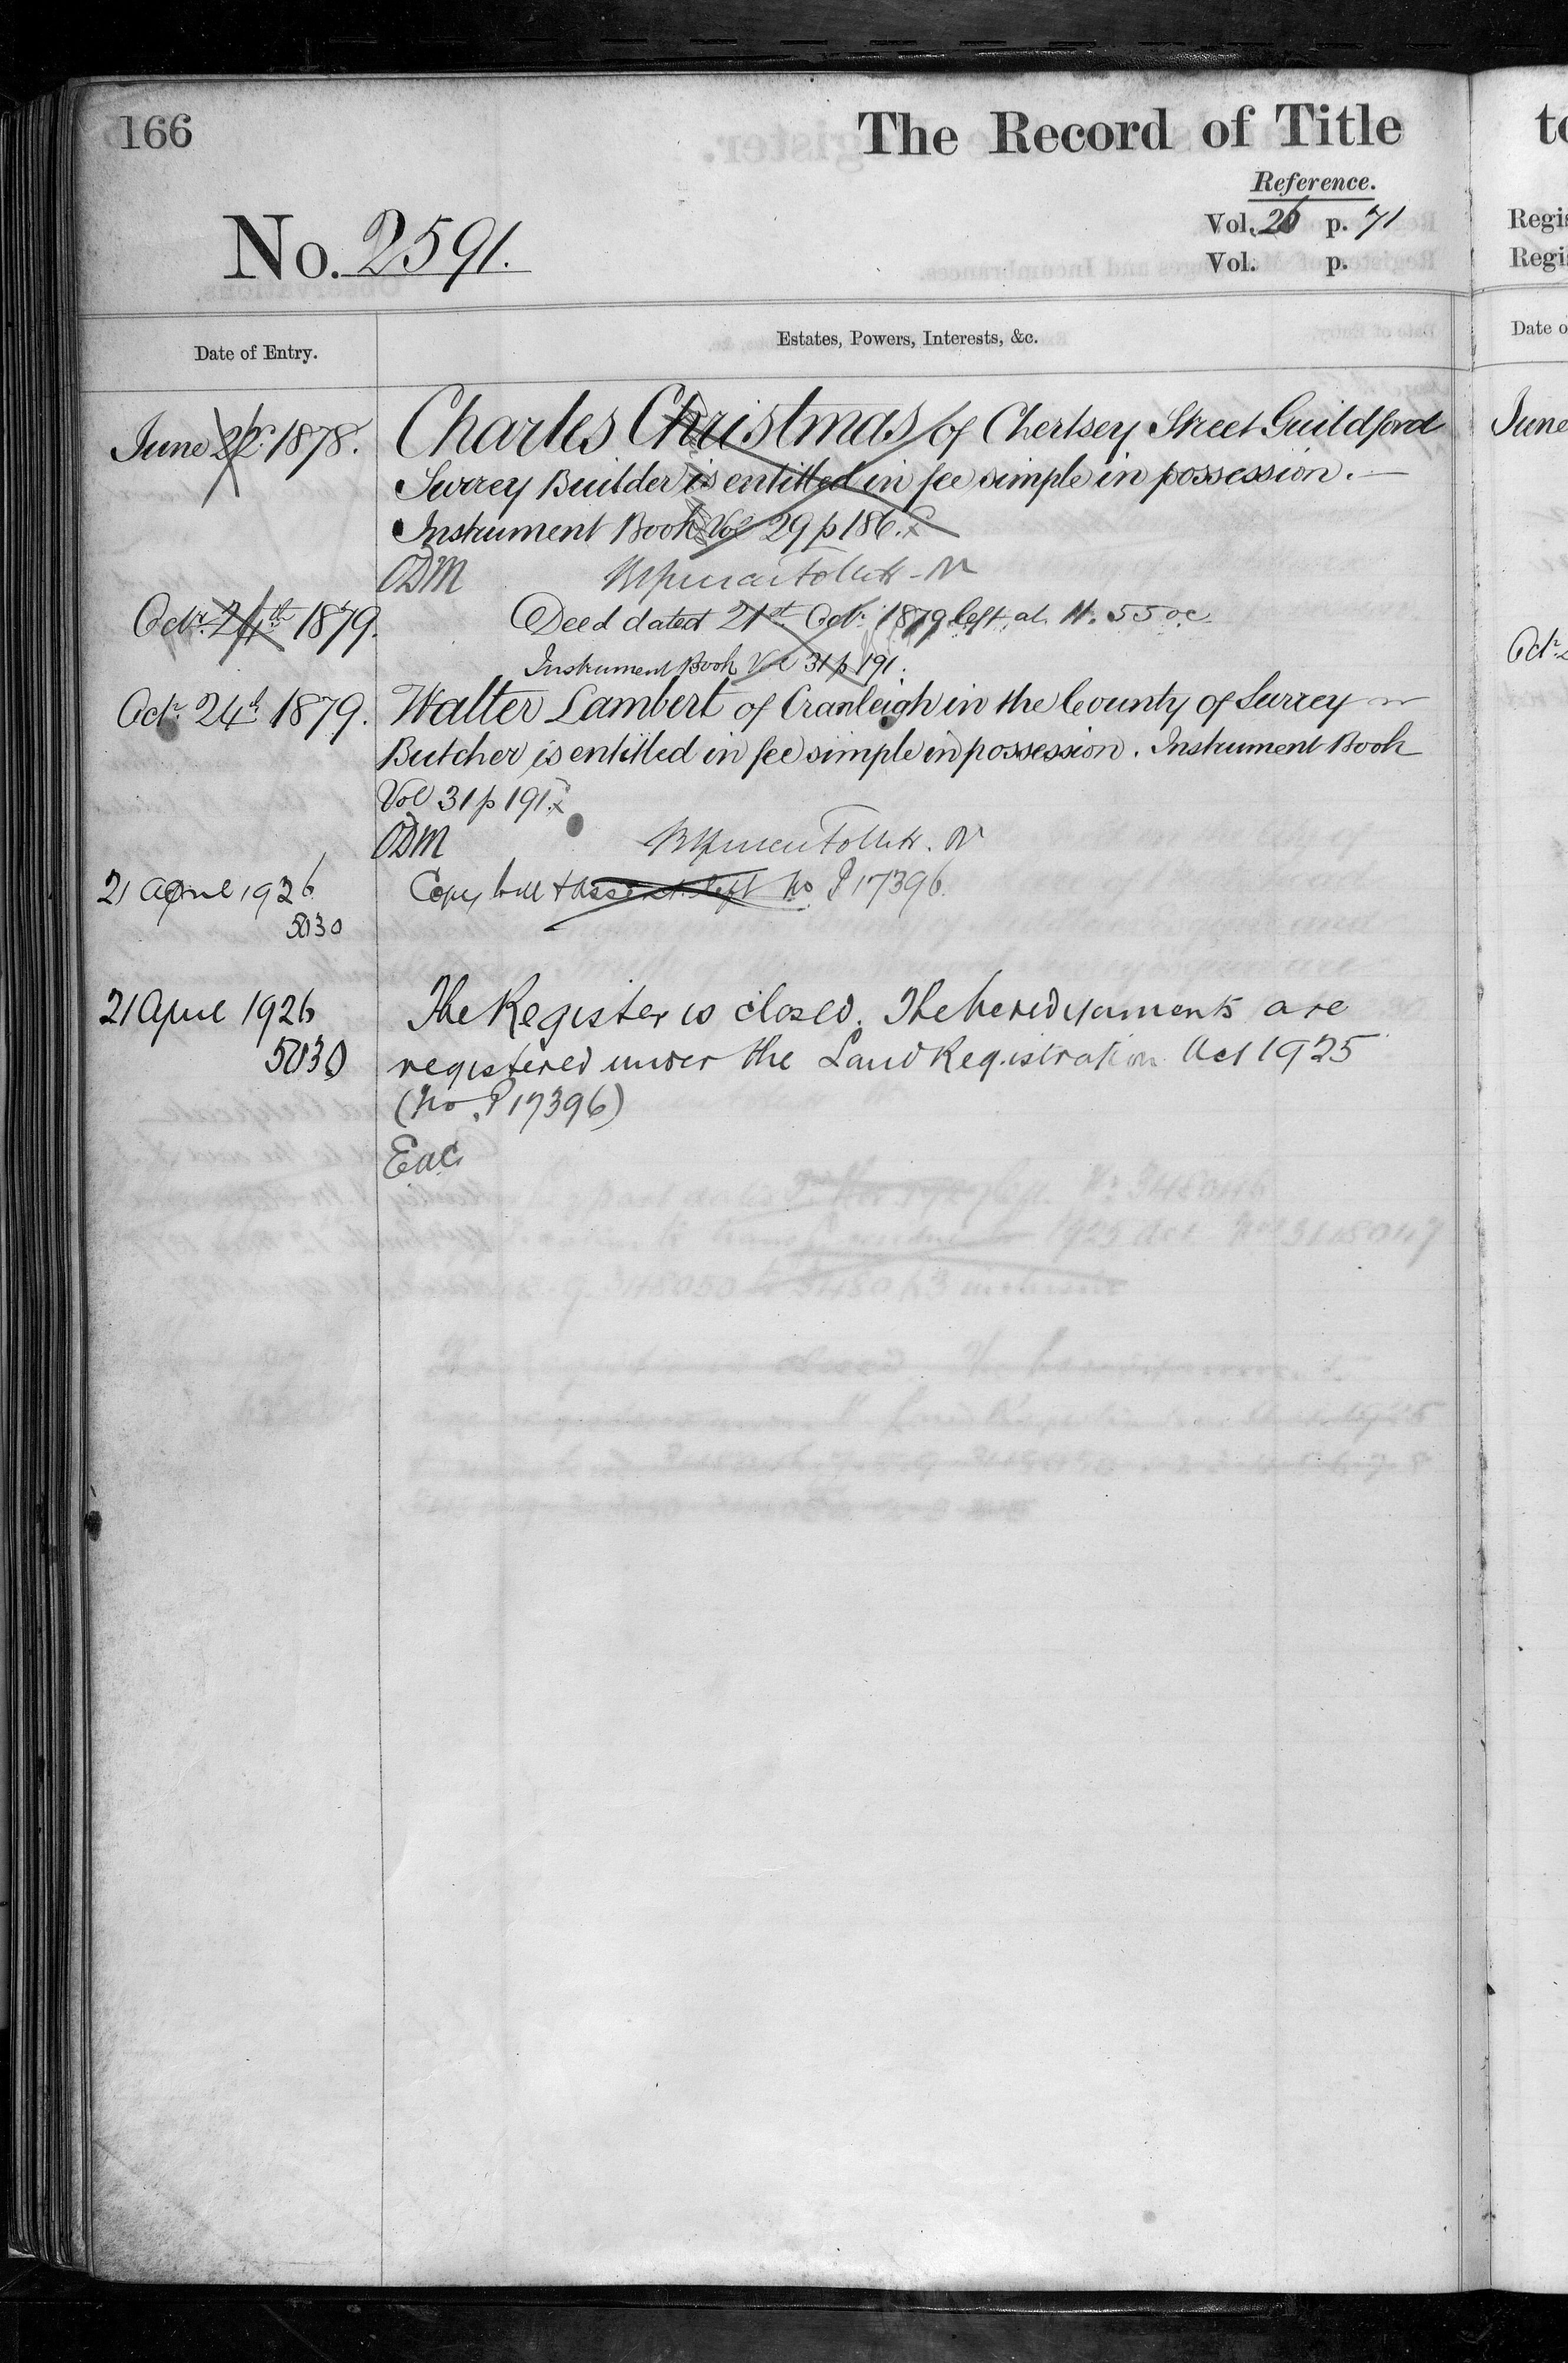 166
The Record of Title
Reference.
Vol. 26 p. 71
Vol. p.
No. 2591.
Date of Entry.
Estates, Powers, Interests, &c.
June 22nd 1878.
Charles Christmas of Chertsey Street Guildford
Surrey Builder is entitled in fee simple in possession.
Instrument Book Vol 29 p 186.
ODM
Octr. 24th 1879.
Deed dated 21st Octr. 1879 left at 11.55 oc
Instrument Book Vol 31 p 191.
Octr. 24th 1879.
Walter Lambert of Cranleigh in the County of Surrey
Butcher is entitled in fee simple in possession. Instrument Book
Vol 31 p 191.
ODM
21 April 1926
5030
Copy will & assent left No P17396.
21 April 1926
5030
The Register is closed. The hereditaments are
registered under the Land Registration Act 1925
(No. P17396)
Eac
to
Regis
Regis
Date o
June
Octr. 2